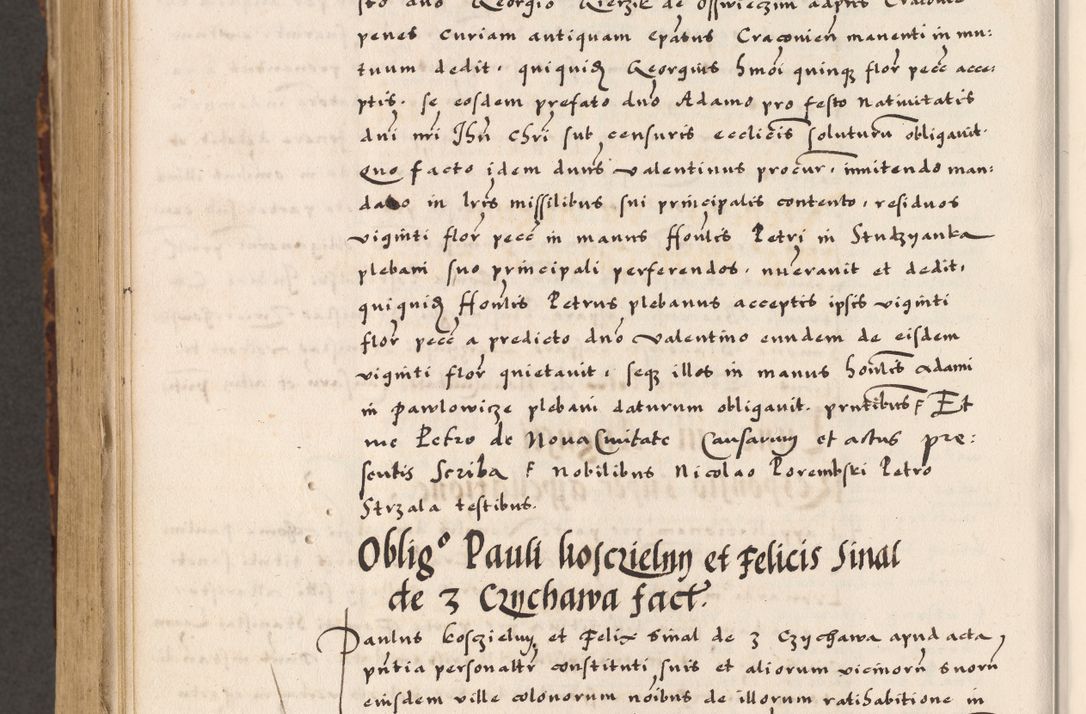 sto dno Georgio Kierzik de Osswieczim adptis Cracovie
penes curiam antiquam epatus Cracovien manenti in mu:
tuum dedit, quiquid Georgius hmoi quinqz flor pecc acce:
ptis. se eosdem prefato dno Adamo pro festo Nativitatis
dni nri Jhu chri sub censuris ecclicis soluturu obligavit.
Quo facto idem duns valentinus procur, innitendo man:
dato in lris missilibus sui principalis contento, residuos
viginti flor pecc in manus Honlis Petri in Studzyanka
plebani suo principali perferendos, nueravit et dedit,
quiquid Honlis Petrus plebanus acceptis ipsis viginti
flor pecc a predicto dno valentino eundem de eisdem
viginti flor quietavit, seqz illos in manus honlis Adami
in Pawlowicze plebani daturum obligavit. prntibus Et
me Petro de Nova Civitate Causarum et actus pre:
sentis Scriba Nobilibus Nicolao Porembski Petro
Strzala testibus.
Oblig° Pauli kosczielny et Felicis Sinal
de 3 Czychawa fact.
Paulus kosczielny et Felix Sinal de 3 Czychawa apud acta
pntia personaltr constituti suis et aliorum vicinoru suoru
eiusdem ville colonorum noibus de illorum ratihabitione in